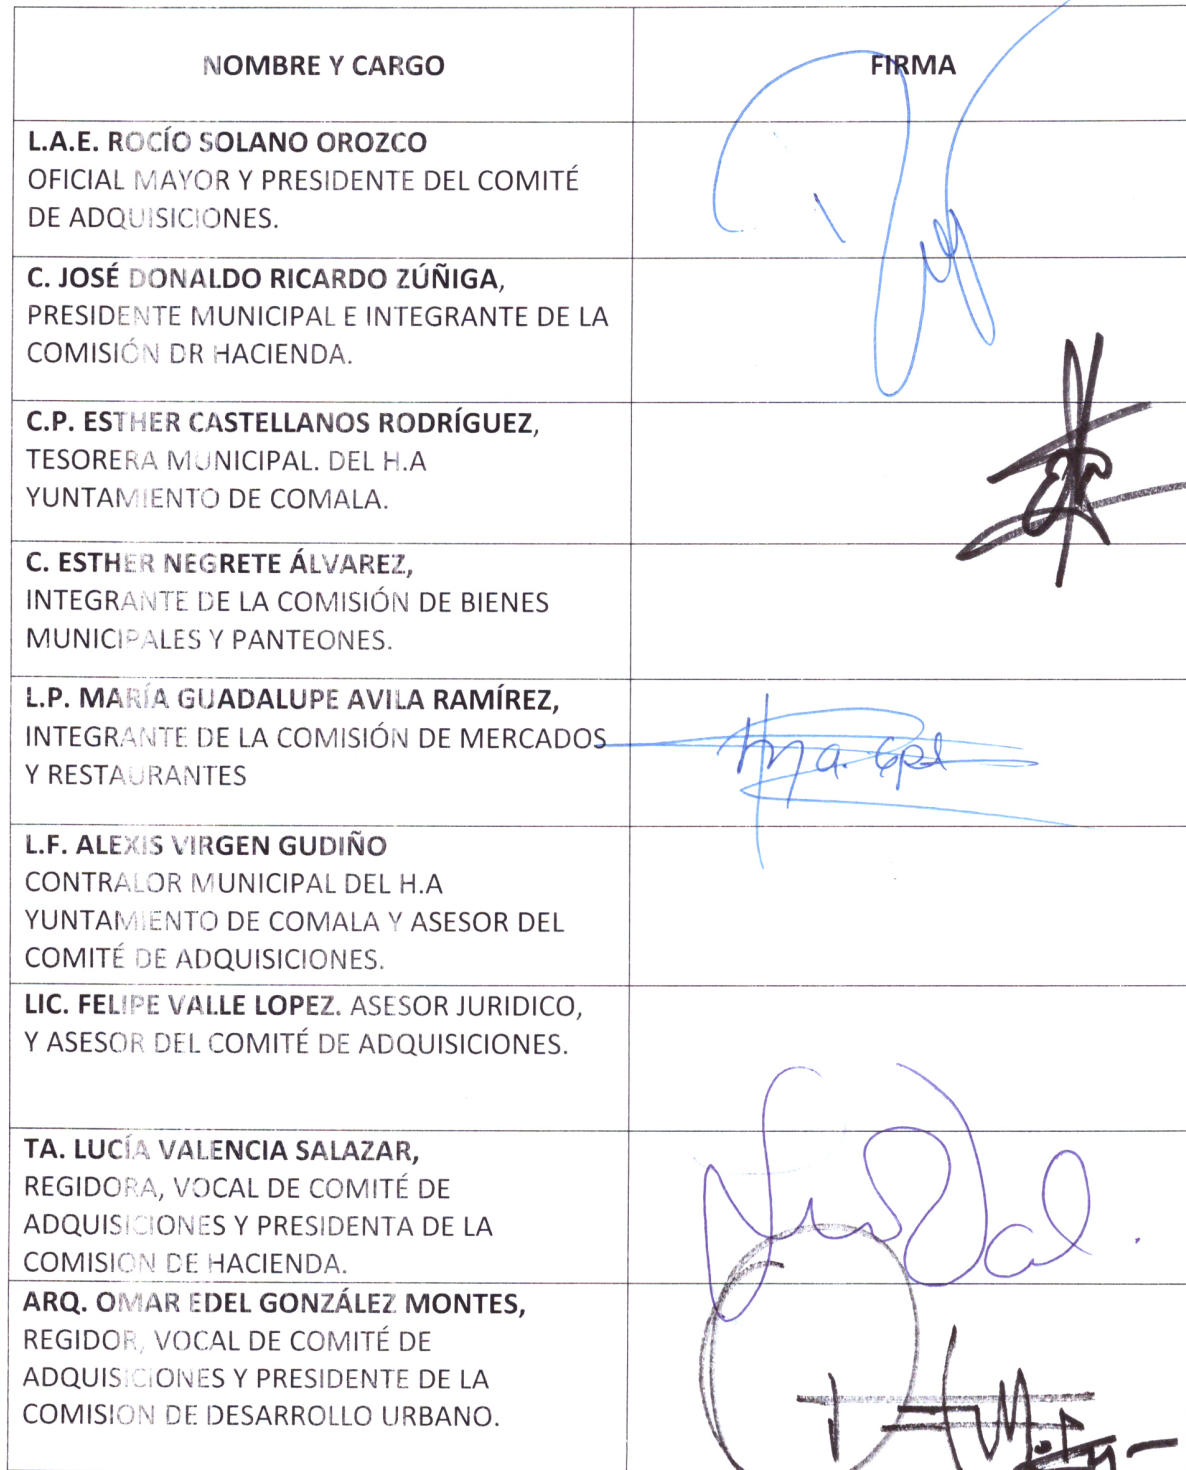 NOMBRE Y CARGO
FIRMA
L.A.E. ROCÍO SOLANO OROZCO
OFICIAL MAYOR Y PRESIDENTE DEL COMITÉ
DE ADQUISICIONES.
C. JOSÉ DONALDO RICARDO ZÚÑIGA,
PRESIDENTE MUNICIPAL E INTEGRANTE DE LA
COMISIÓN DR HACIENDA.
C.P. ESTHER CASTELLANOS RODRÍGUEZ,
TESORERA MUNICIPAL. DEL H.A
YUNTAMIENTO DE COMALA.
C. ESTHER NEGRETE ÁLVAREZ,
INTEGRANTE DE LA COMISIÓN DE BIENES
MUNICIPALES Y PANTEONES.
L.P. MARÍA GUADALUPE AVILA RAMÍREZ,
INTEGRANTE DE LA COMISIÓN DE MERCADOS
Y RESTAURANTES
Ma. Gpe
L.F. ALEXIS VIRGEN GUDIÑO
CONTRALOR MUNICIPAL DEL H.A
YUNTAMIENTO DE COMALA Y ASESOR DEL
COMITÉ DE ADQUISICIONES.
LIC. FELIPE VALLE LOPEZ. ASESOR JURIDICO,
Y ASESOR DEL COMITÉ DE ADQUISICIONES.
TA. LUCÍA VALENCIA SALAZAR,
REGIDORA, VOCAL DE COMITÉ DE
ADQUISICIONES Y PRESIDENTA DE LA
COMISION DE HACIENDA.
ARQ. OMAR EDEL GONZÁLEZ MONTES,
REGIDOR, VOCAL DE COMITÉ DE
ADQUISICIONES Y PRESIDENTE DE LA
COMISION DE DESARROLLO URBANO.